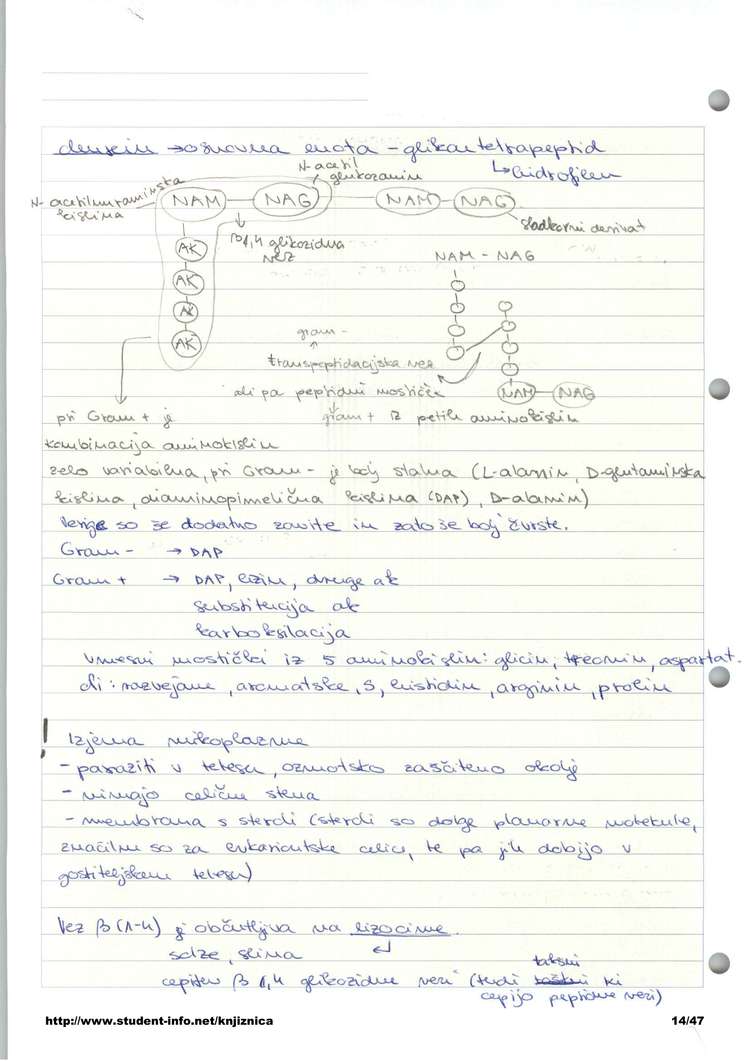 murein → osnovna enota - glikantetrapeptid
↳ hidrofilen
N-acetil
glukozamin
N-acetilmuraminska
kislina
NAM NAG NAM NAG
sladkorni derivat
β1,4 glikozidna
vez
NAM - NAG
AK
AK
AK
AK
gram -
transpeptidacijska vez
ali pa peptidni mostiček
NAM NAG
gram + iz petih aminokislin
pri Gram + je
kombinacija aminokislin
zelo variabilna, pri Gram - je bolj stalna (L-alanin, D-glutaminska
kislina, diaminopimelična kislina (DAP), D-alanin)
Verige so še dodatno zavite in zato še bolj čvrste.
Gram - → DAP
Gram + → DAP, lizin, druge ak
substitucija ak
karboksilacija
Vmesni mostički iz 5 aminokislin: glicin, treonin, aspartat.
: razvejane, aromatske, S, histidin, arginin, prolin
! Izjema mikoplazme
- paraziti v telesu, ozmotsko zaščiteno okolje
- nimajo celične stene
- membrana s steroli (steroli so dolge planarne molekule,
značilne so za evkariontske celice, te pa jih dobijo v
gostiteljskem telesu)
Vez β (1-4) je občutljiva na lizocime.
solze, slina
takšni
cepitev β 1,4 glikozidne vezi (tudi ki
cepijo peptidne vezi)
http://www.student-info.net/knjiznica 14/47